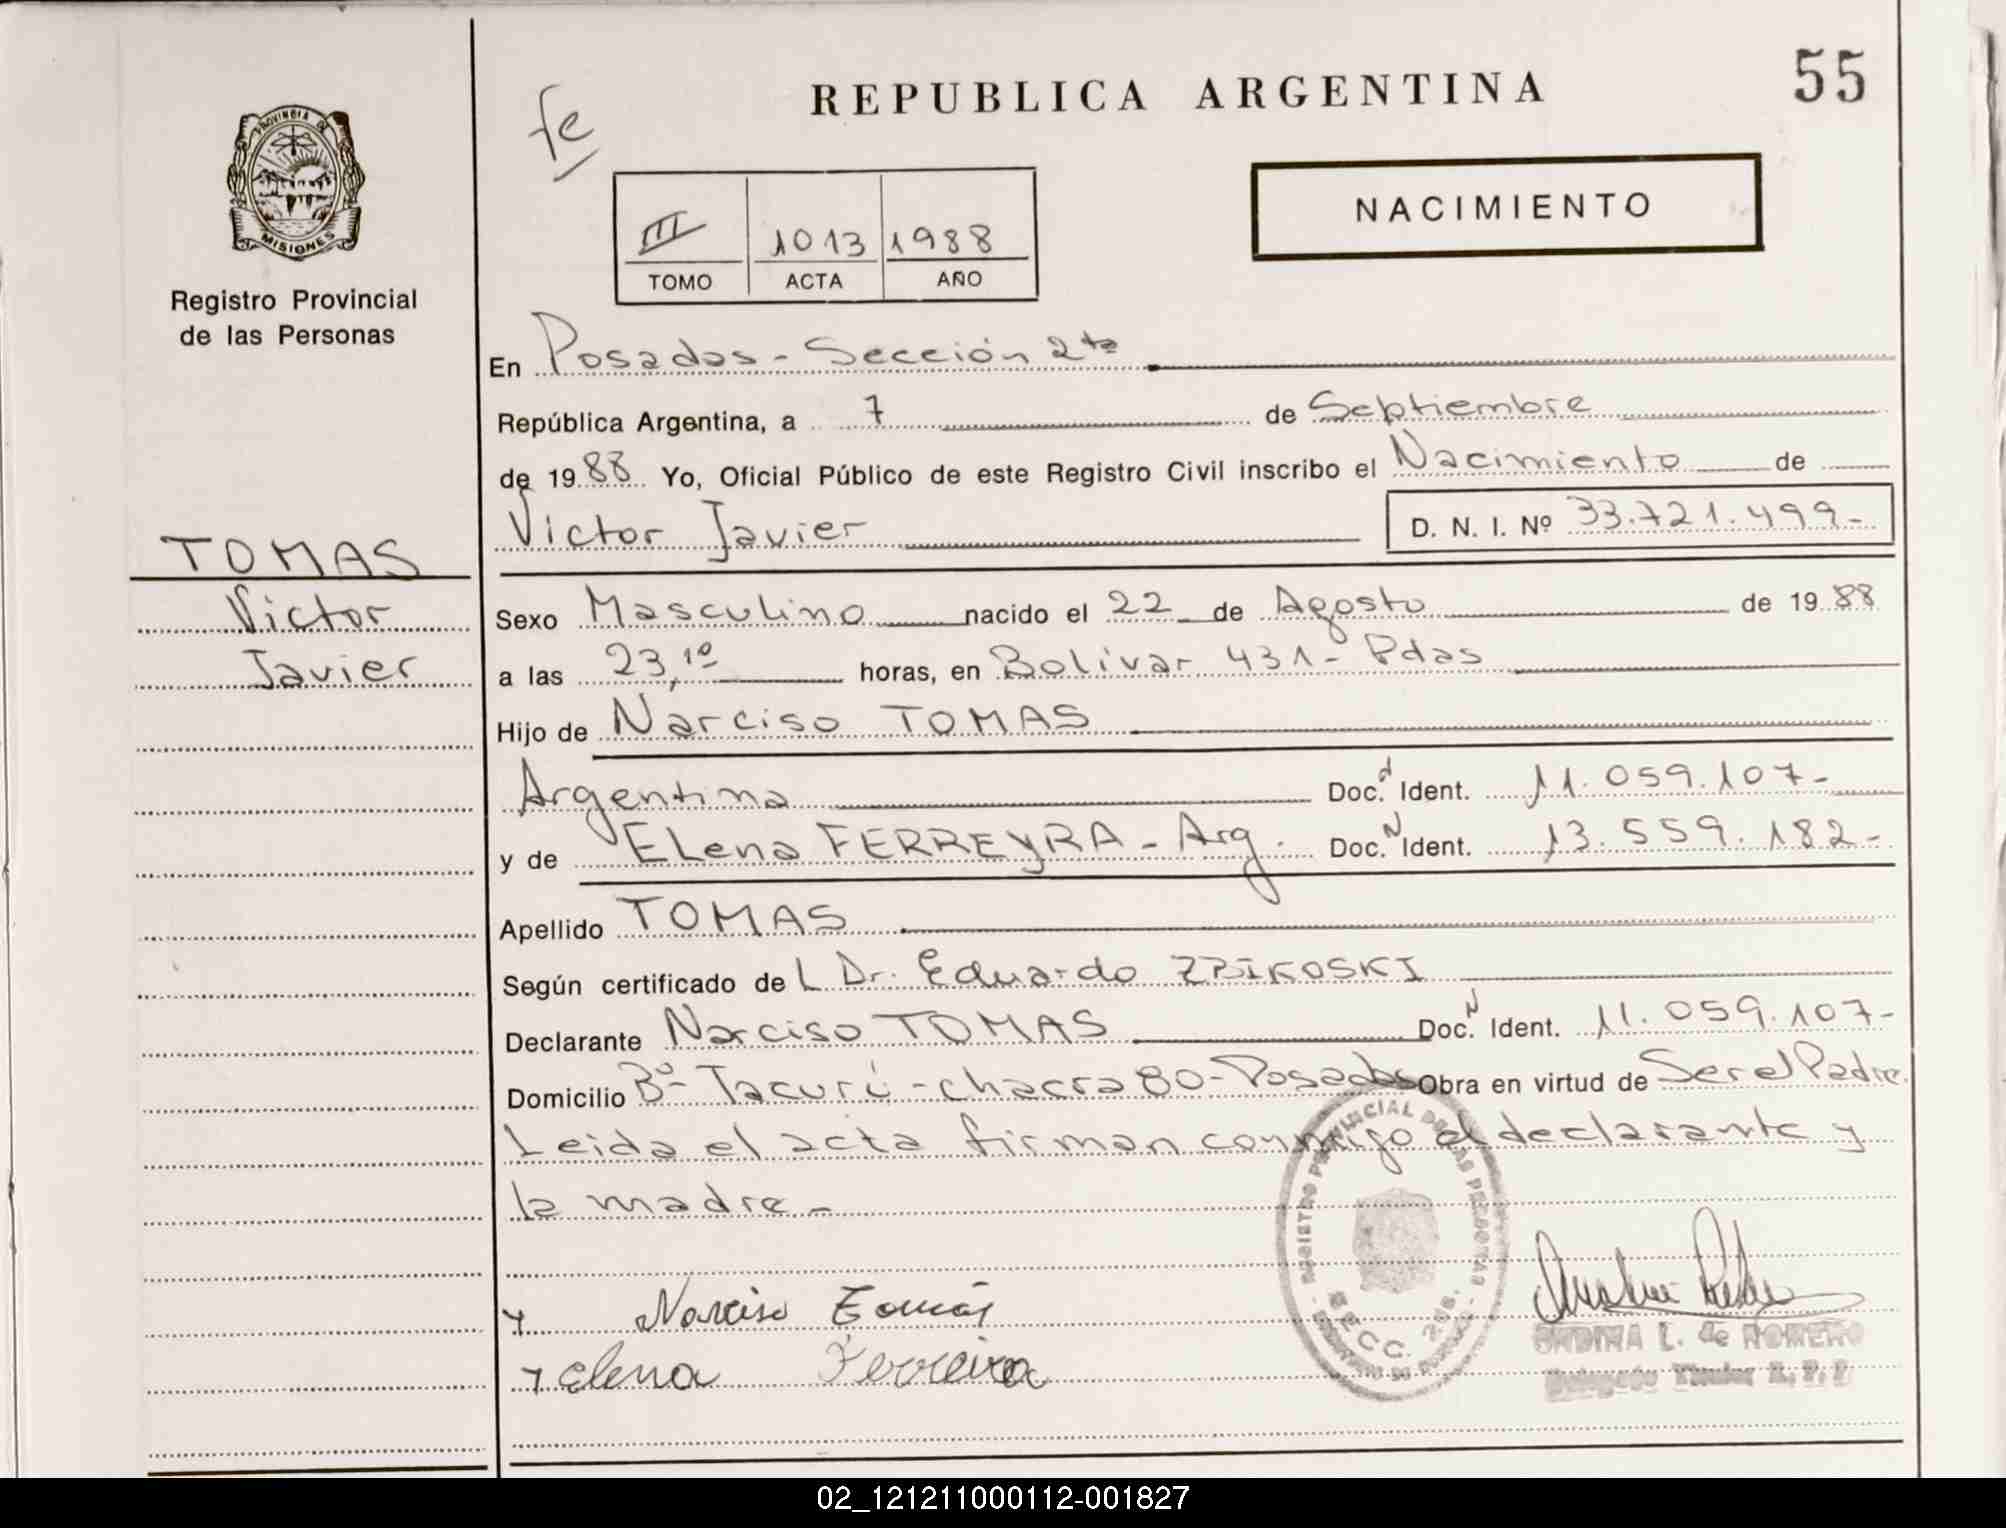 REPUBLICA ARGENTINA
55
fe
PROVINCIA DE
MISIONES
Registro Provincial
de las Personas
III 1013 1988
TOMO ACTA AÑO
NACIMIENTO
En Posadas - Sección 2da
República Argentina, a 7 de Septiembre
de 1988 Yo, Oficial Público de este Registro Civil inscribo el Nacimiento de
Victor Javier D. N. I. Nº 33.721.499-
TOMAS
Victor
Javier
Sexo Masculino nacido el 22 de Agosto de 1988
a las 23,10 horas, en Bolivar 431 - Pdas
Hijo de Narciso TOMAS
Argentina Doc. Ident. 11.059.107-
y de Elena FERREYRA - Arg. Doc. N Ident. 13.559.182-
Apellido TOMAS
Según certificado de L Dr. Eduardo ZBIKOSKI
Declarante Narciso TOMAS Doc. N Ident. 11.059.107-
Domicilio Bº- Tacurú - chacra 80 - Posadas Obra en virtud de Ser el Padre.
Leida el acta firman conmigo el declarante y
la madre -
Narciso Tomás
Elena Ferreira
REGISTRO PROVINCIAL DE LAS PERSONAS
SECC. 2da.
ONDINA L. de ROMERO
Delegado Titular R. P. P.
02_121211000112-001827